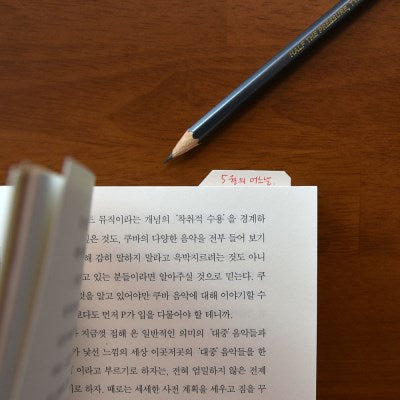 HALF THE PRESSURE, T
5월의 어느날.
뮤직이라는 개념의 '착취적 수용'을 경계하
은 것도, 쿠바의 다양한 음악을 전부 들어 보기
해 감히 말하지 말라고 윽박지르려는 것도 아니
고 있는 분들이라면 알아주실 것으로 믿는다. 쿠
것을 알고 있어야만 쿠바 음악에 대해 이야기할 수
다도 먼저 P가 입을 다물어야 할 테니까.
지금껏 접해 온 일반적인 의미의 '대중' 음악들과
가 낯선 느낌의 세상 이곳저곳의 '대중' 음악들을 한
이라고 부르기로 하자는, 전혀 엄밀하지 않은 전제
로 하자. 때로는 세세한 사전 계획을 세우고 짐을 꾸